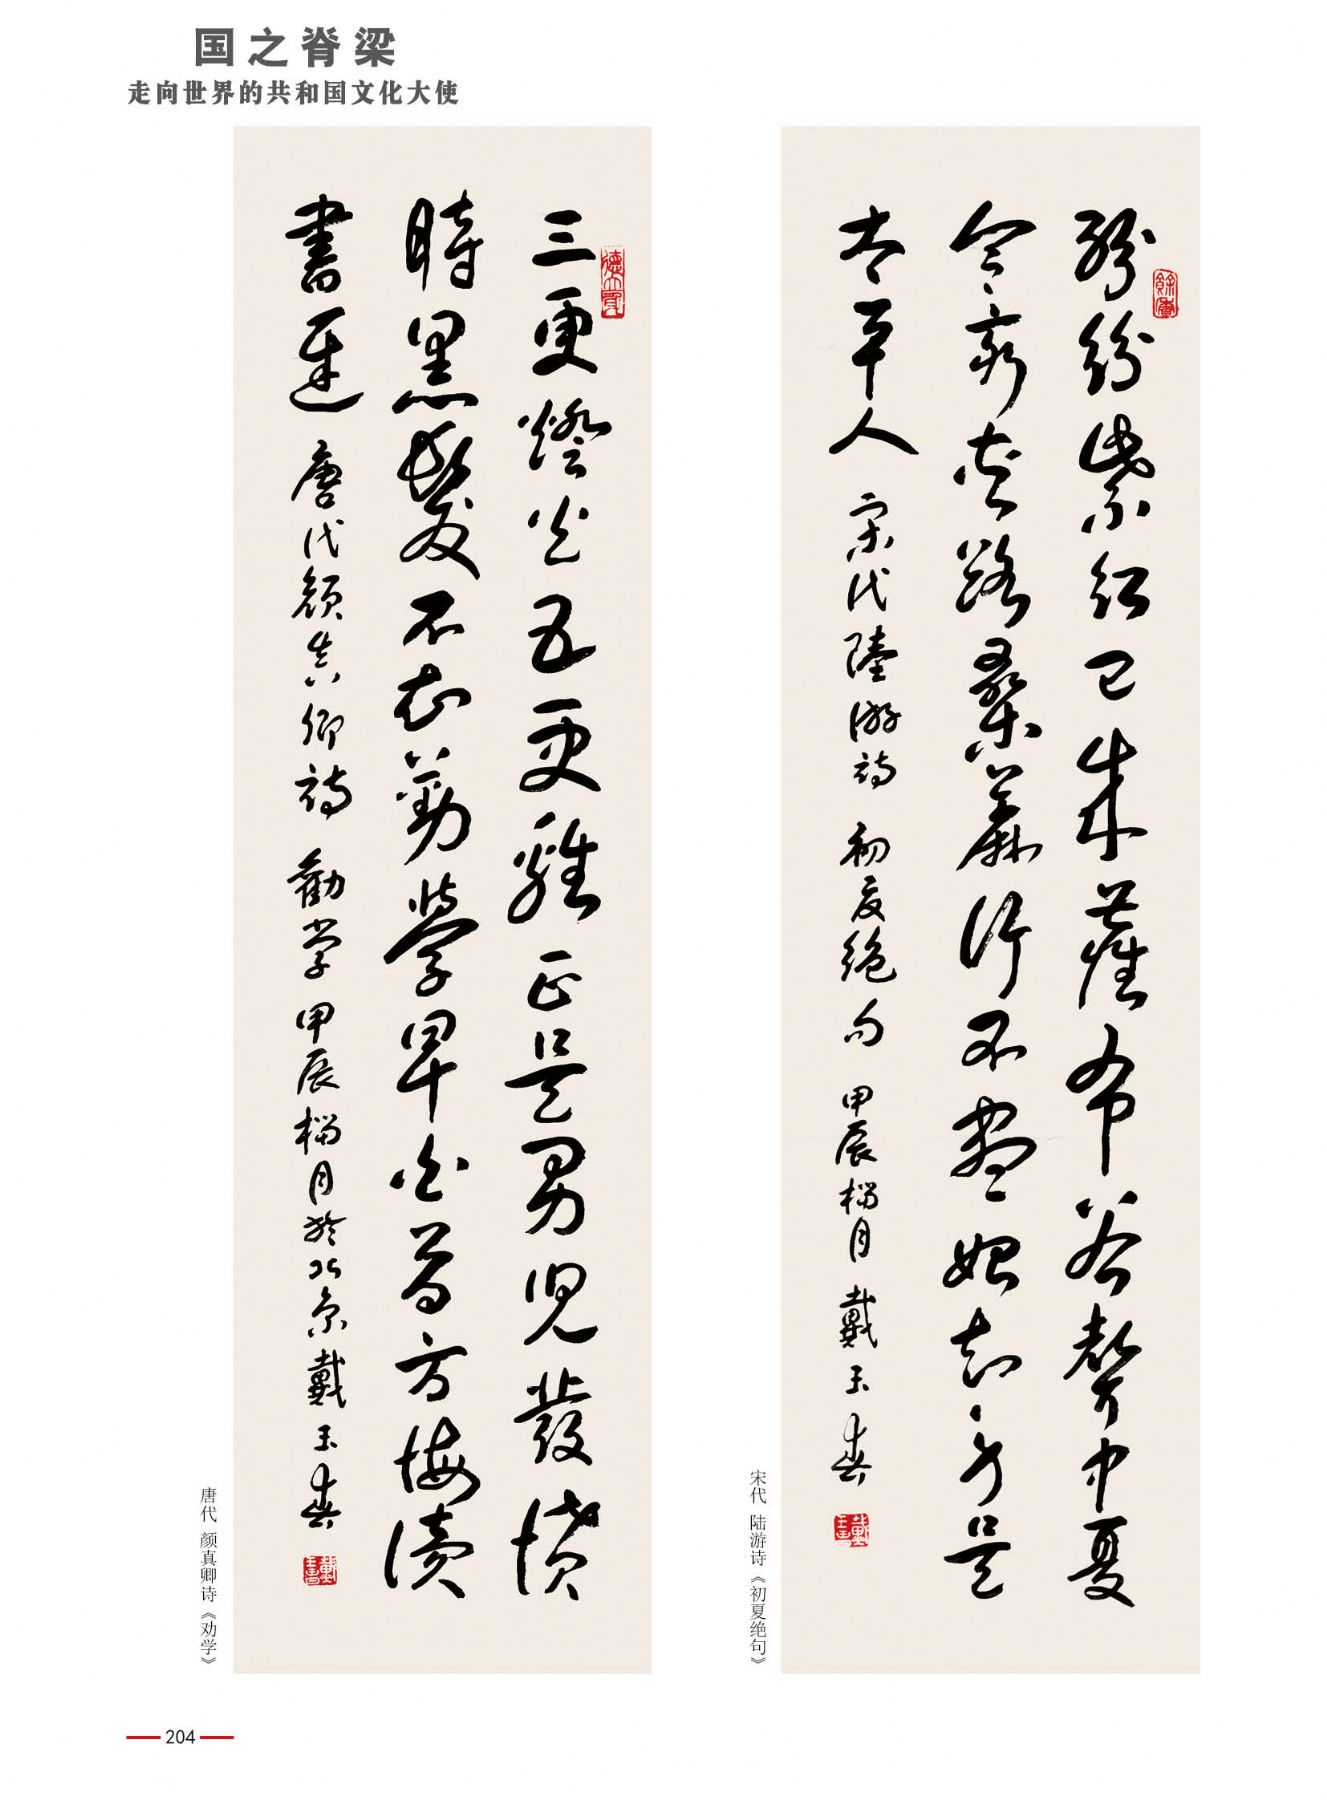 国之脊梁
走向世界的共和国文化大使
纷纷紫红已成尘布谷声中夏
令夾夹路桑麻行不尽始知身是
太平人 宋代陆游诗 初夏绝句 甲辰榴月 戴玉春
宋代 陆游诗《初夏绝句》
三更燈火五更雞正是男兒發憤
時黑髮不知勤學早白首方悔讀
書遲 唐代顏真卿詩 勸学 甲辰榴月於北京戴玉春
唐代 颜真卿诗《劝学》
204